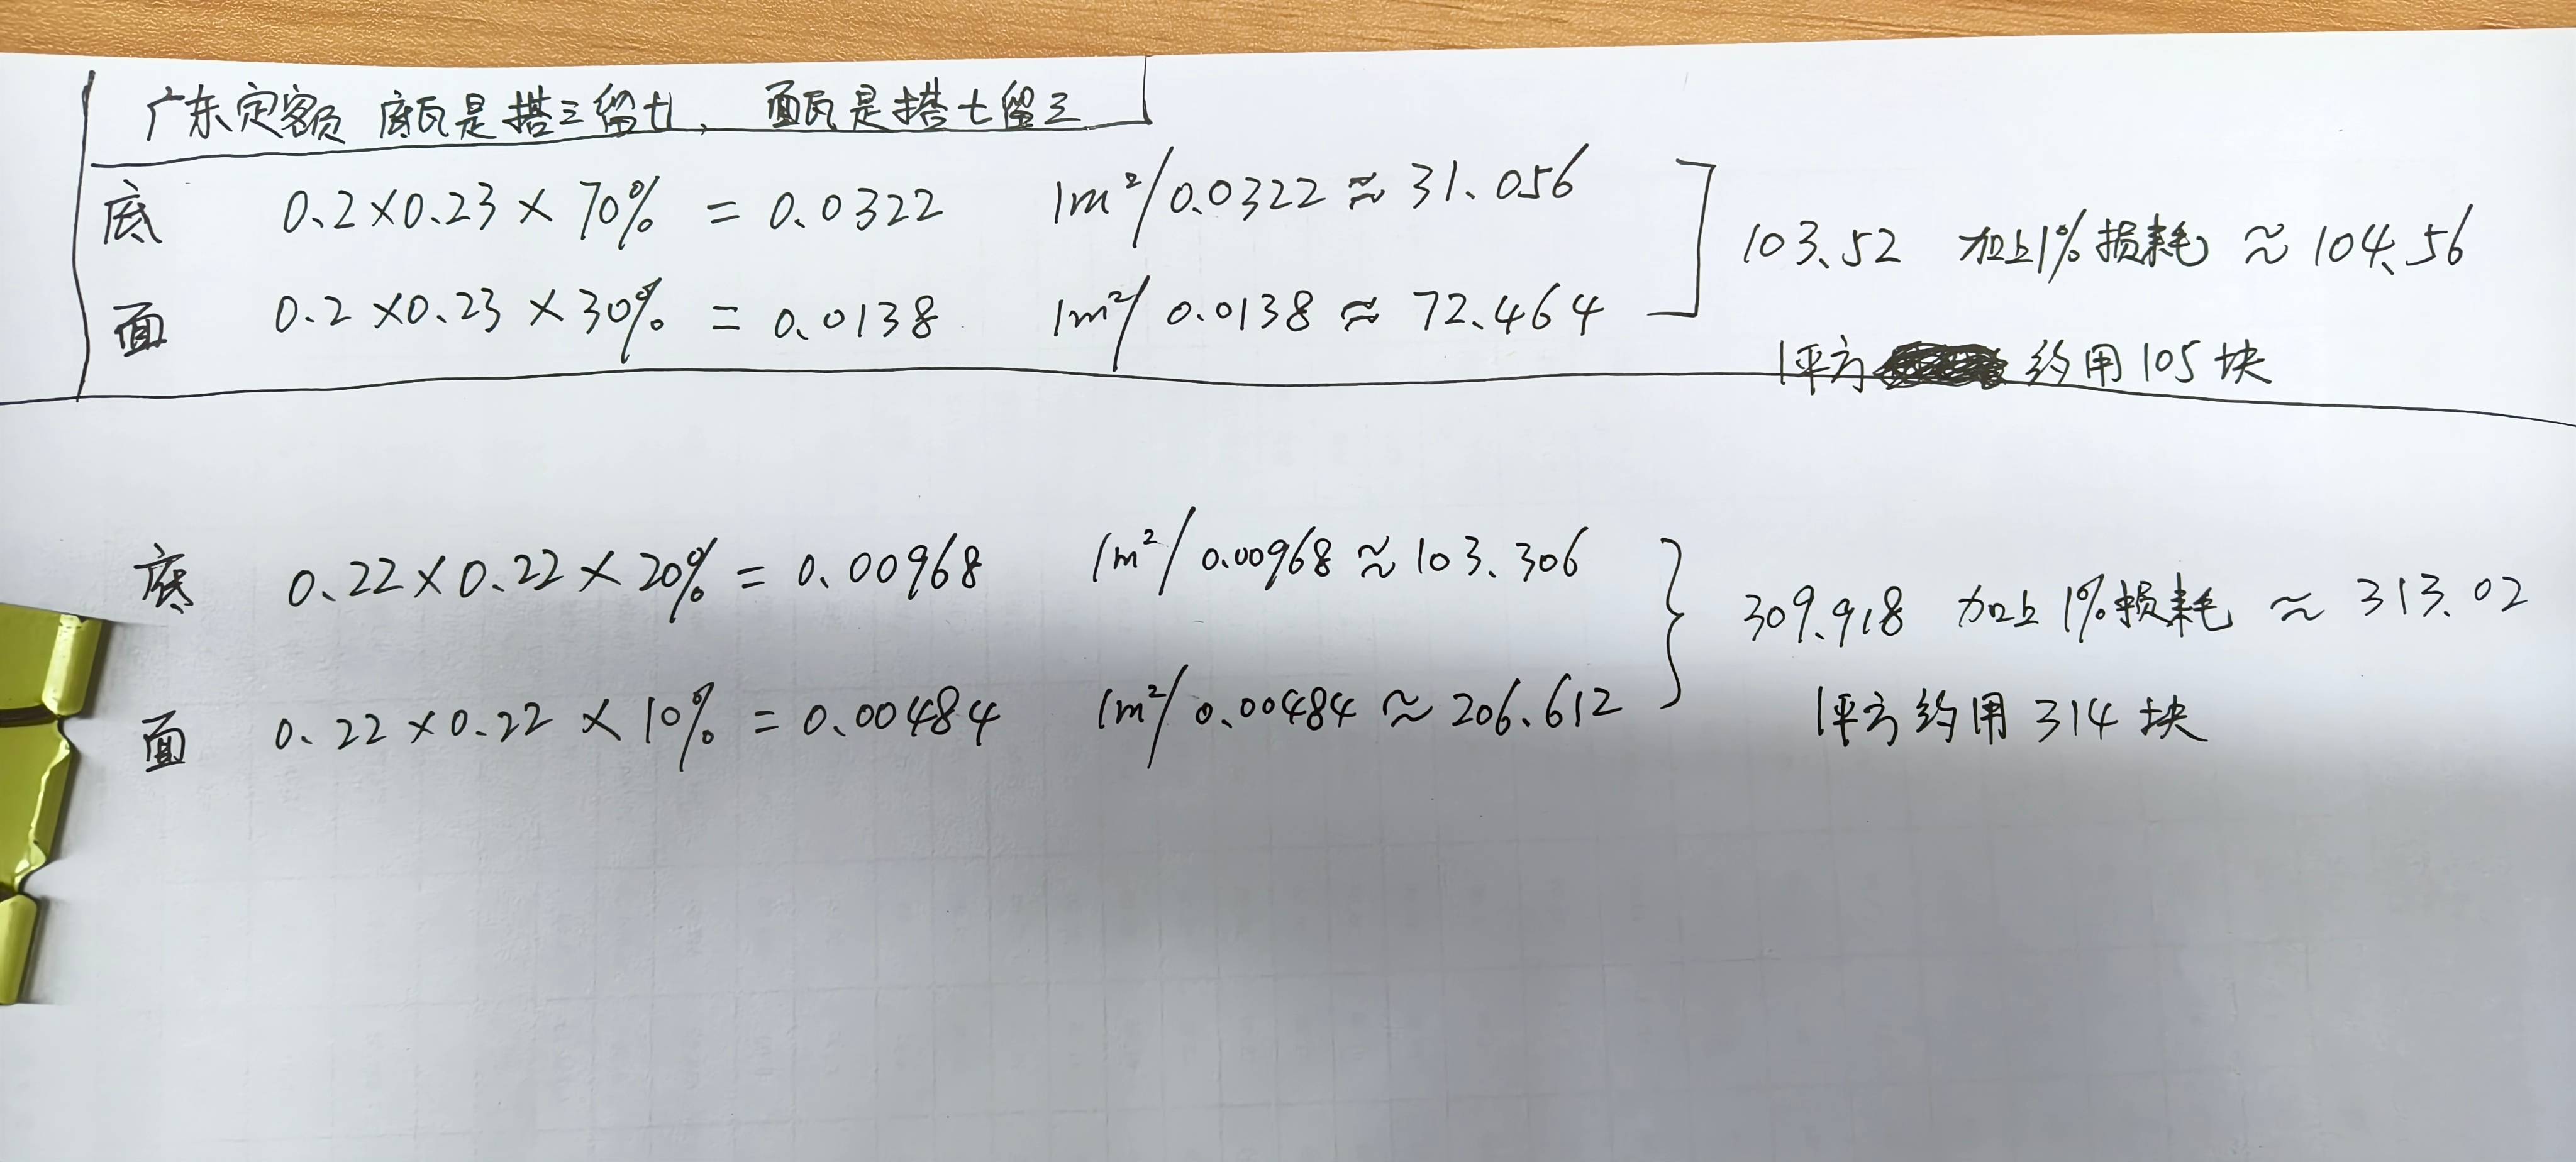 广东定额 底瓦是搭三留七、面瓦是搭七留三
底 0.2×0.23×70% = 0.0322 1m²/0.0322≈31.056
面 0.2×0.23×30% = 0.0138 1m²/0.0138≈72.464
103.52 加上1%损耗≈104.56
1平方 约用105块
底 0.22×0.22×20%=0.00968 1m²/0.00968≈103.306
面 0.22×0.22×10%=0.00484 1m²/0.00484≈206.612
309.918 加上1%损耗≈313.02
1平方约用314块